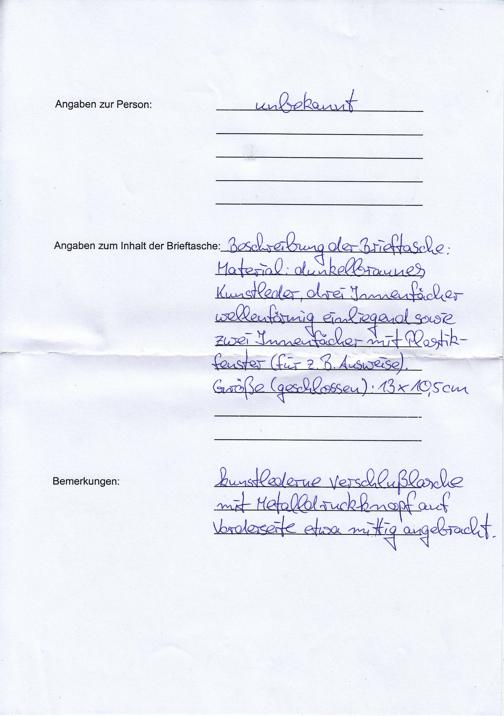 Angaben zur Person: unbekannt
Angaben zum Inhalt der Brieftasche: Beschreibung der Brieftasche:
Material: dunkelbraunes
Kunstleder, drei Innenfächer
wellenförmig einliegend sowie
zwei Innenfächer mit Plastik-
fenster (für z.B. Ausweise).
Größe (geschlossen): 13 x 10,5cm
Bemerkungen: kunstlederne Verschlußlasche
mit Metalldruckknopf auf
Vorderseite etwa mittig angebracht.